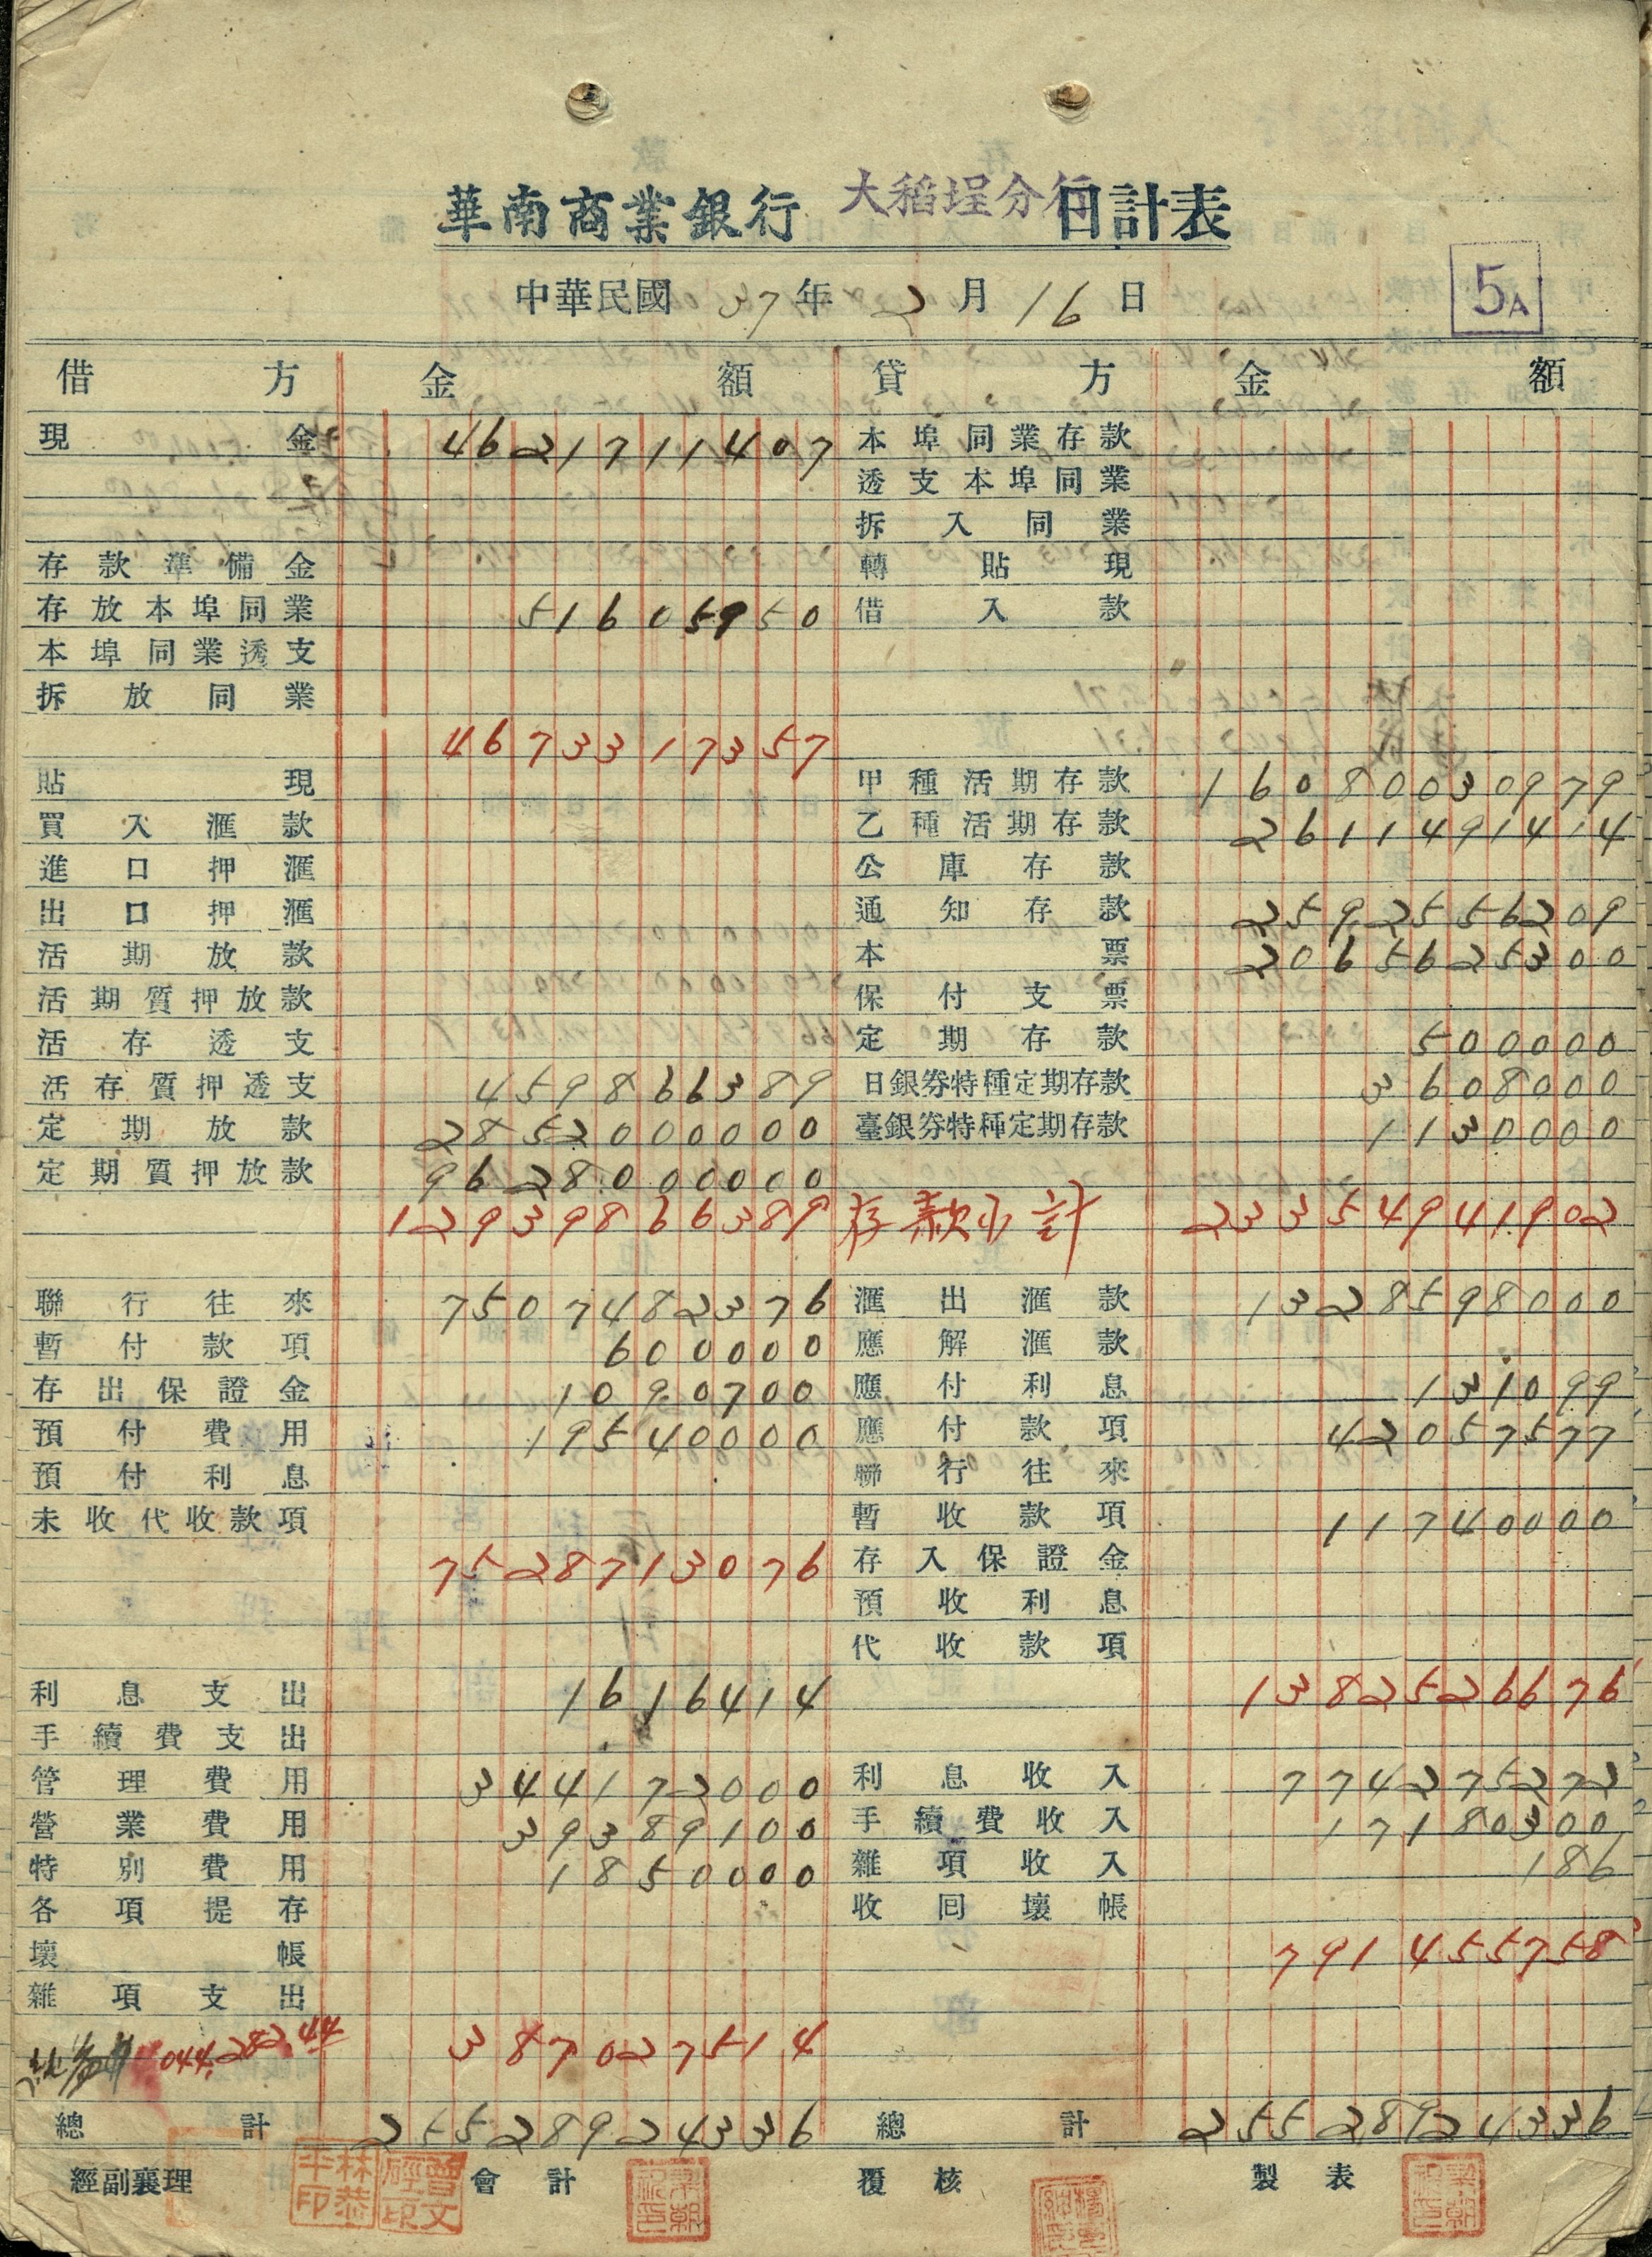 華南商業銀行 大稻埕分行 日計表
中華民國 37 年 2 月 16 日
5A
借方 金額 貸方 金額
現金 4621711407 本埠同業存款
透支本埠同業
拆入同業
存款準備金 轉貼現
存放本埠同業 51605950 借入款
本埠同業透支
拆放同業
4673317357
貼現 甲種活期存款 16080030979
買入滙款 乙種活期存款 2611491414
進口押滙 公庫存款
出口押滙 通知存款 2592556209
活期放款 本票 2065625300
活期質押放款 保付支票
活存透支 定期存款 500000
活存質押透支 459866389 日銀券特種定期存款 3608000
定期放款 2852000000 臺銀券特種定期存款 1130000
定期質押放款 9628000000
12939866389 存款小計 23354941902
聯行往來 7507482376 滙出滙款 1328598000
暫付款項 600000 應解滙款
存出保證金 1090700 應付利息 131099
預付費用 19540000 應付款項 42057577
預付利息 聯行往來
未收代收款項 暫收款項 11740000
7528713076 存入保證金
預收利息
代收款項
利息支出 1616414 1382526676
手續費支出
管理費用 344172000 利息收入 774275272
營業費用 39389100 手續費收入 17180300
特別費用 1850000 雜項收入 186
各項提存 收回壞帳
壞帳 791455758
雜項支出
044,282.44 387027514
總計 25528924336 總計 25528924336
經副襄理 會計 覆核 製表